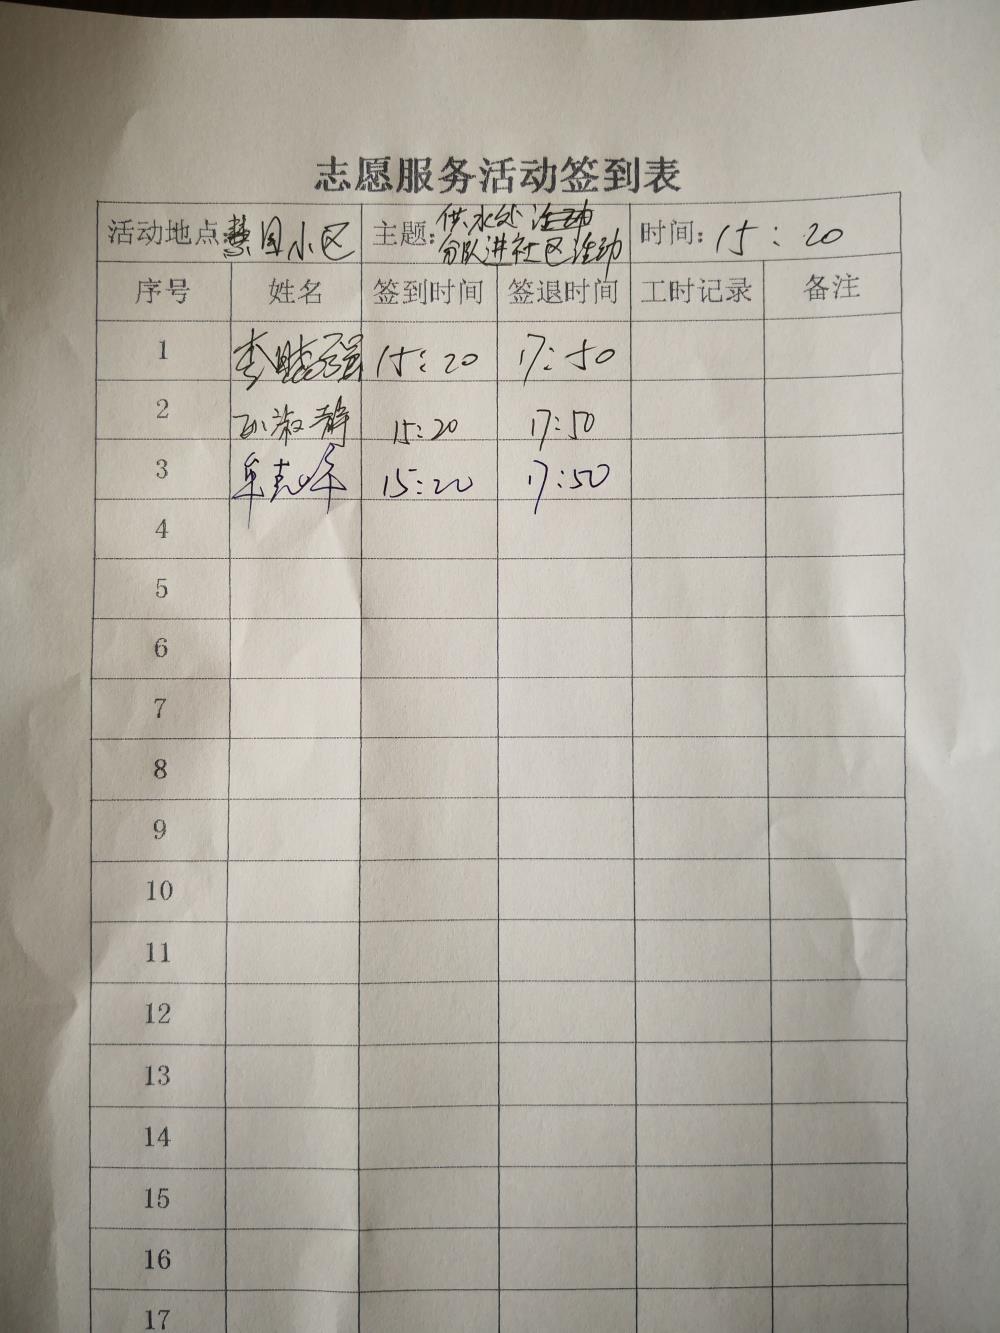 志愿服务活动签到表
活动地点: 慧园小区 主题: 供水处 活动 分队进社区活动 时间: 15:20
序号 姓名 签到时间 签退时间 工时记录 备注
1 15:20 17:50
2 孙淑静 15:20 17:50
3 15:20 17:50
4
5
6
7
8
9
10
11
12
13
14
15
16
17